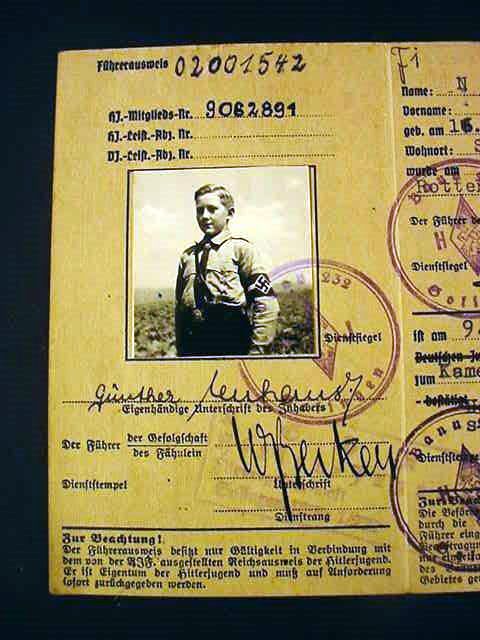 Führerausweis 02001542
HJ.-Mitglieds-Nr. 9062891
HJ.-Leist.-Abz. Nr.
DJ.-Leist.-Abz. Nr.
232
Dienstsiegel
Günther
Eigenhändige Unterschrift des Inhabers
Der Führer der Gefolgschaft
des Fähnlein
Dienststempel
Unterschrift
Dienstrang
Zur Beachtung!
Der Führerausweis besitzt nur Gültigkeit in Verbindung mit
dem von der RJF. ausgestellten Reichsausweis der Hitlerjugend.
Er ist Eigentum der Hitlerjugend und muß auf Anforderung
sofort zurückgegeben werden.
Name: N
Vorname:
geb. am 16.
Wohnort: S
wurde am
Rotte
Der Führer de
Dienstsiegel
ist am 9.
Deutschen Ju
zum Kame
bestätigt
Dienststempe
Zur Beach
Die Beförd
durch die
Führer eing
Gebietes ge